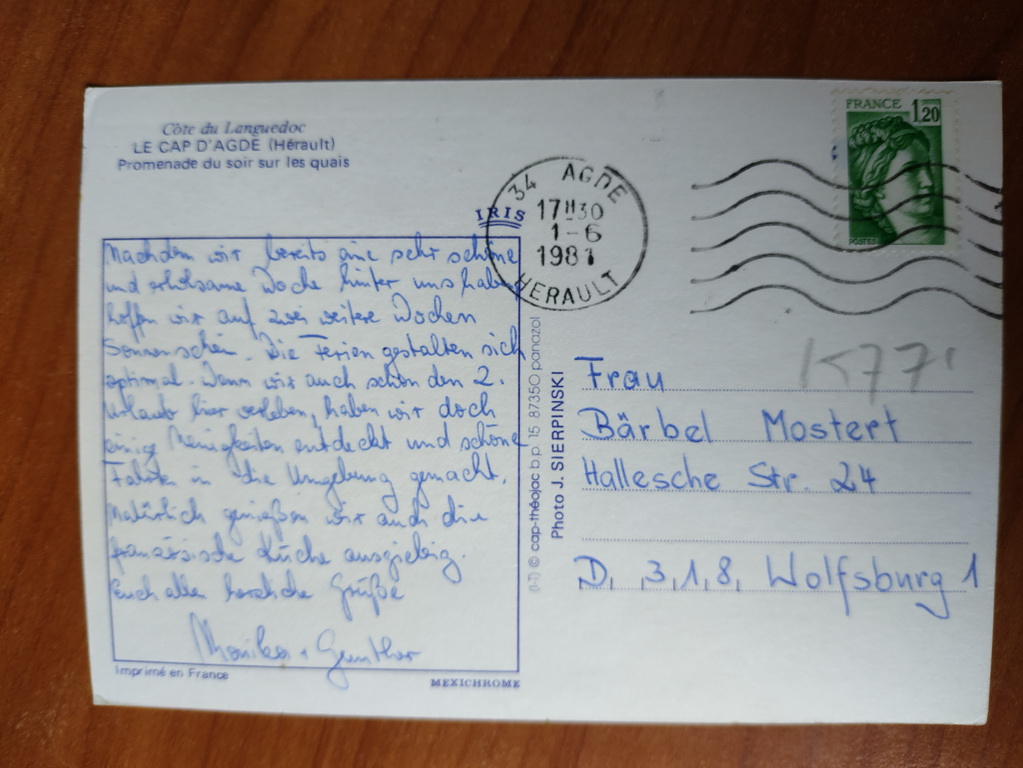 Côte du Languedoc
LE CAP D'AGDE (Hérault)
Promenade du soir sur les quais
IRIS
Nachdem wir bereits eine sehr schöne
und erholsame Woche hinter uns haben
hoffen wir auf zwei weitere Wochen
Sonnenschein. Die Ferien gestalten sich
optimal. Wenn wir auch schon den 2.
Urlaub hier verleben, haben wir doch
einige Neuigkeiten entdeckt und schöne
Fahrten in die Umgebung gemacht.
Natürlich genießen wir auch die
französische Küche ausgiebig.
Euch allen herzliche Grüße
Monika + Gunther
Imprimé en France
MEXICHROME
cap-théojac b.p. 15 87350 panazol
Photo J. SIERPINSKI
34 AGDE
17H30
1-6
1981
HERAULT
FRANCE 1,20
POSTES
K77
Frau
Bärbel Mostert
Hallesche Str. 24
D, 3,1,8, Wolfsburg 1